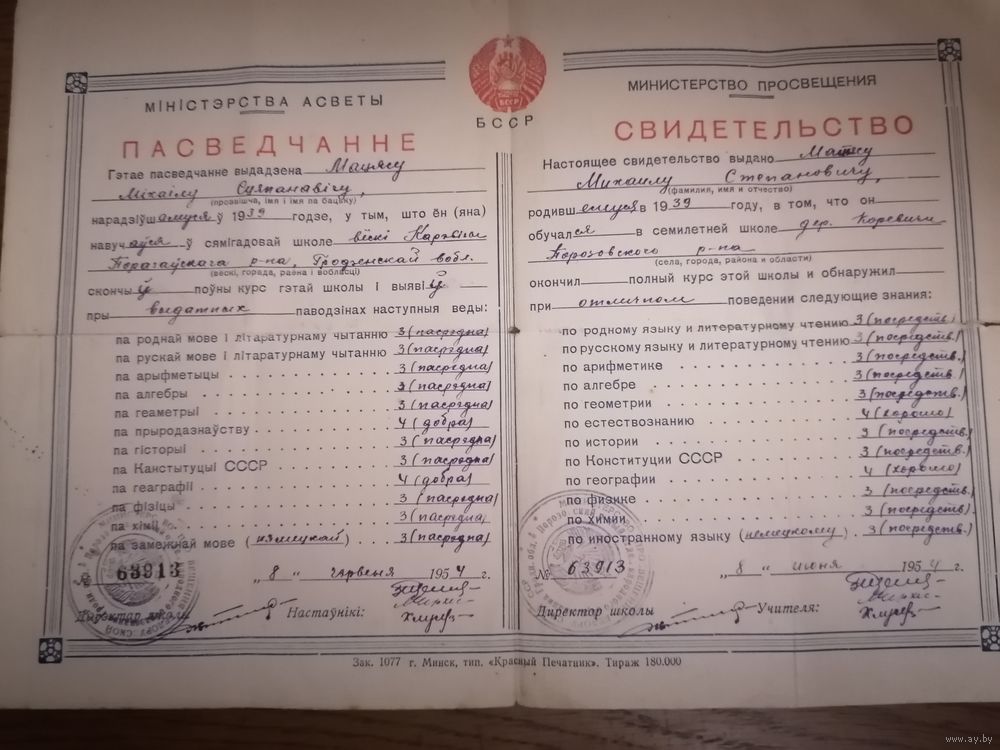 БССР
МІНІСТЭРСТВА АСВЕТЫ
ПАСВЕДЧАННЕ
Гэтае пасведчанне выдадзена
Міхаілу Сцяпанавічу,
(прозвішча, імя і імя па бацьку)
нарадзіўшамуся ў 1939 годзе, у тым, што ён (яна)
навучаўся ў сямігадовай школе вёскі Карэвічы
Поразаўскага р-на, Гродзенскай вобл.
(вескі, горада, раена і вобласці)
скончыў поўны курс гэтай школы і выявіў
пры выдатных паводзінах наступныя веды:
па роднай мове і літаратурнаму чытанню 3 (пасрэдна)
па рускай мове і літаратурнаму чытанню 3 (пасрэдна)
па арыфметыцы 3 (пасрэдна)
па алгебры 3 (пасрэдна)
па геаметрыі 3 (пасрэдна)
па прыродазнаўству 4 (добра)
па гісторыі 3 (пасрэдна)
па Канстытуцыі СССР 3 (пасрэдна)
па геаграфіі 4 (добра)
па фізіцы 3 (пасрэдна)
па хіміі 3 (пасрэдна)
па замежнай мове (нямецкай) 3 (пасрэдна)
№ 63913
„8“ чэрвеня 1954 г.
Дырэктар школы Настаўнікі:
МИНИСТЕРСТВО ПРОСВЕЩЕНИЯ
СВИДЕТЕЛЬСТВО
Настоящее свидетельство выдано
Михаилу Степановичу,
(фамилия, имя и отчество)
родившемуся в 1939 году, в том, что он
обучался в семилетней школе дер. Коревичи
Порозовского р-на
(села, города, района и области)
окончил полный курс этой школы и обнаружил
при отличном поведении следующие знания:
по родному языку и литературному чтению 3 (посредств.)
по русскому языку и литературному чтению 3 (посредств.)
по арифметике 3 (посредств.)
по алгебре 3 (посредств.)
по геометрии 3 (посредств.)
по естествознанию 4 (хорошо)
по истории 3 (посредств.)
по Конституции СССР 3 (посредств.)
по географии 4 (хорошо)
по физике 3 (посредств.)
по химии 3 (посредств.)
по иностранному языку (немецкому) 3 (посредств.)
№ 63913
„8“ июня 1954 г.
Директор школы Учителя:
Зак. 1077 г. Минск, тип. «Красный Печатник». Тираж 180.000
www.ay.by